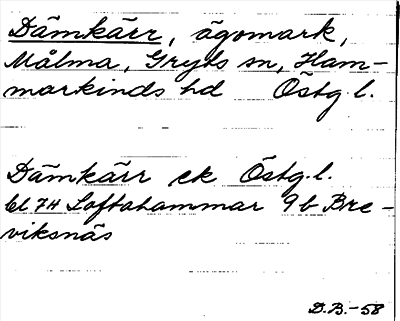 Dämkärr, ägomark,
Målma, Gryts sn, Ham-
markinds hd Östg. l.
Dämkärr ek Östg. l.
bl 7H Loftahammar 9b Bre-
viksnäs
D.B.-58